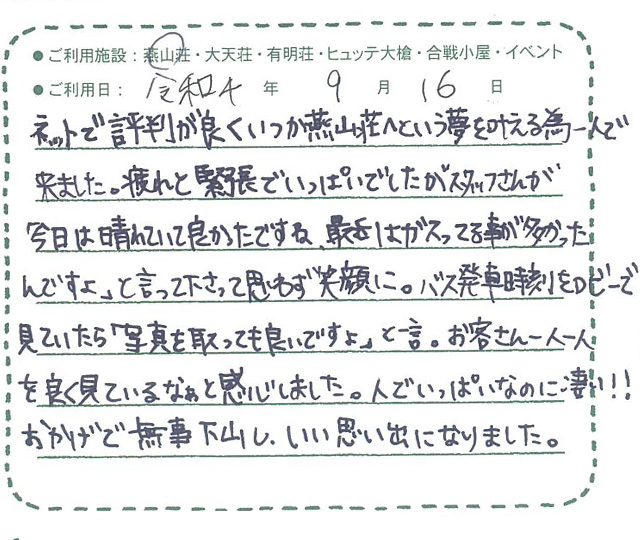 ●ご利用施設：燕山荘・大天荘・有明荘・ヒュッテ大槍・合戦小屋・イベント
●ご利用日：令和4年 9月 16日
ネットで評判が良くいつか燕山荘へという夢を叶える為一人で
来ました。疲れと緊張でいっぱいでしたがスタッフさんが
今日は晴れていて良かったですね、最近はガスってる事が多かった
んですよ」と言って下さって思わず笑顔に。バス発車時刻をロビーで
見ていたら「写真を取っても良いですよ」と一言。お客さん一人一人
を良く見ているなぁと感心しました。人でいっぱいなのに凄い!!
おかげで無事下山し、いい思い出になりました。